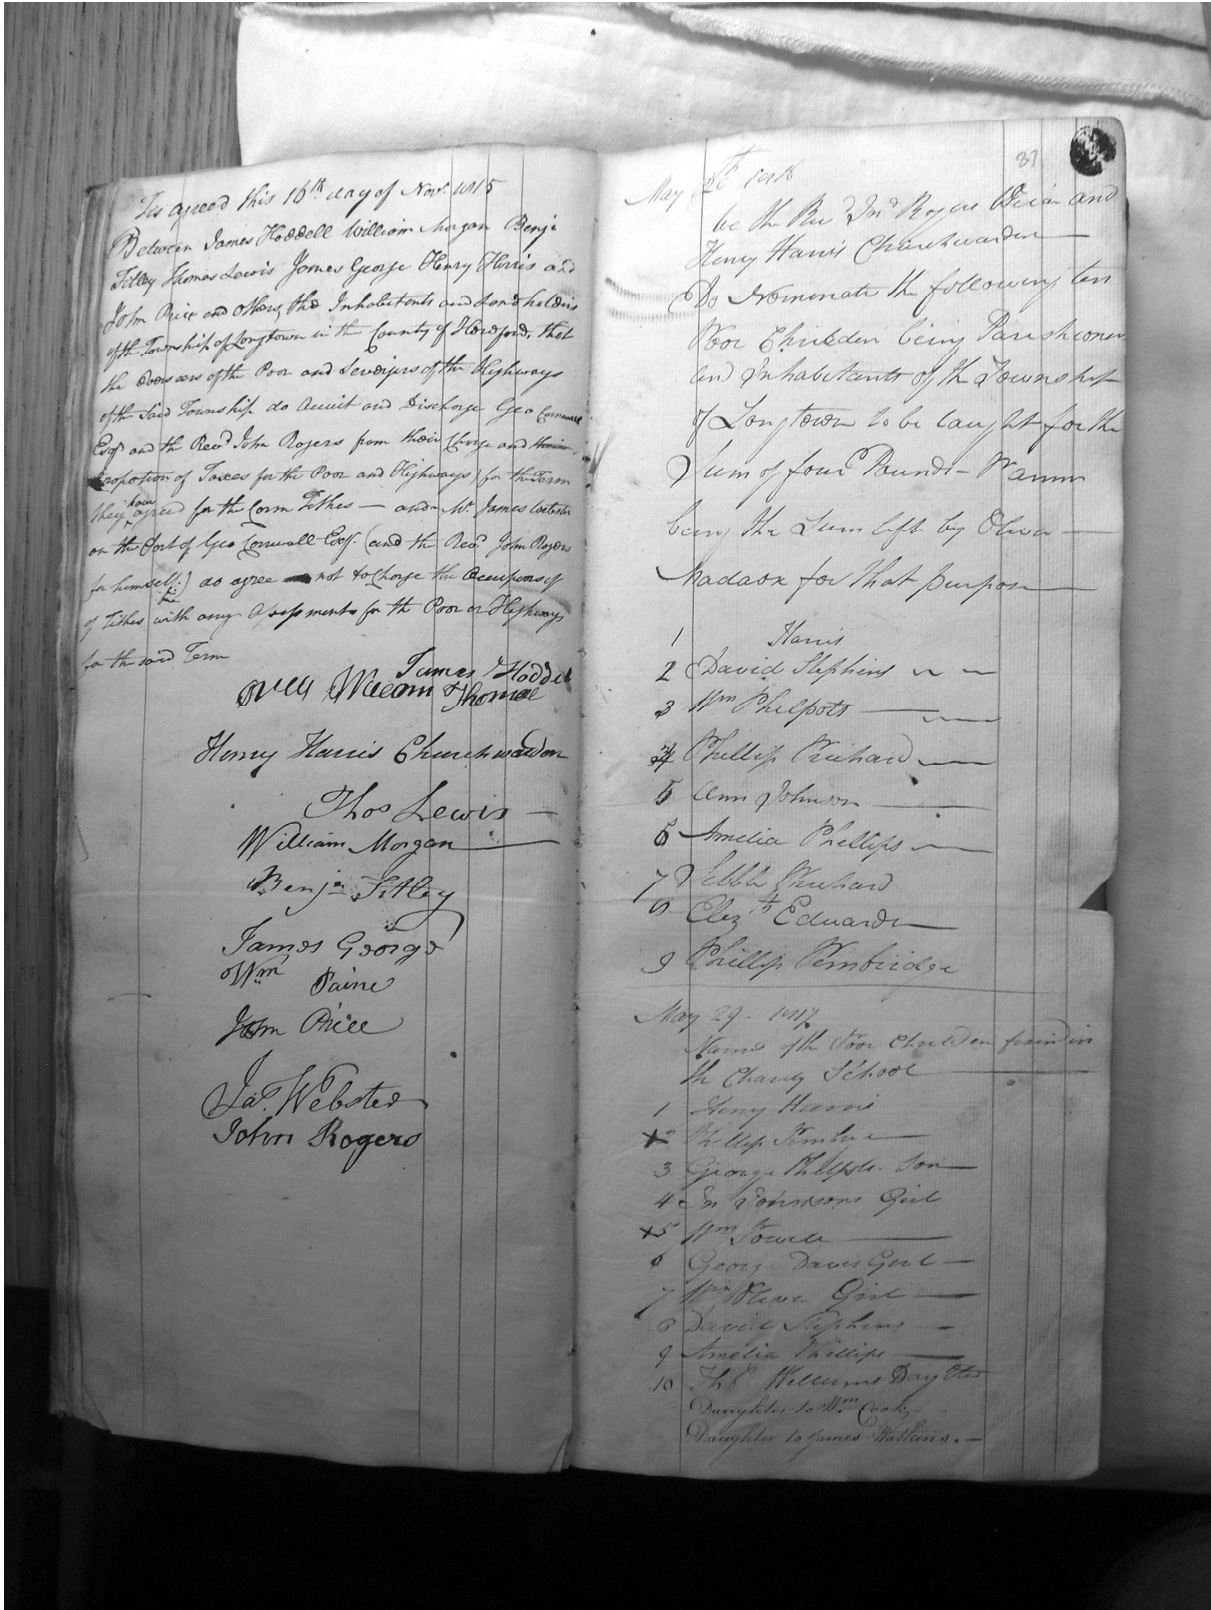 Tis agreed this 16th day of Novr. 1815
Between James Hoddell William Morgan Benj.
Titley Thomas Lewis James George Henry Harris and
John Price and others, the Inhabitants and Landholders
of the Township of Longtown in the County of Hereford, that
the Overseers of the Poor and Surveyors of the Highways
of the Said Township do Acquit and Discharge Geo Cornwall
Esqr. and the Revd. John Rogers from their Charge and their
Proportion of Taxes for the Poor and Highways) for the Term
they have agreed for the Corn Tithes — and Mr. James Webster
on the Part of Geo Cornwall Esqr. (and the Revd. John Rogers
for himself:) do agree not to Charge the Occupiers of
Tithes with any Assessments for the Poor or Highways
for the said Term
James Hoddell
William Thomas
Henry Harris Churchwardon
Thos Lewis —
William Morgan —
Benjn Titley
James George
Wm Paine
John Price
Jas. Webster
John Rogers
37
May 1816
We the Revd. Jno. Rogers and
Henry Harris Churchwarden —
Do Nominate the following ten
Poor Children being Parishioners
and Inhabitants of the Township
of Longtown to be taught for the
Sum of four Pounds
being the Sum left by Oliver —
Madaox for that purpose —
1 Harris
2 David Stephens
3 Wm Philpots —
4 Phillip Prichard —
5 Ann Johnson —
6 Amelia Phillips —
7 Prichard
8 Elizth Edwards —
9 Phillip Pembridge
May 29 - 1817
Names of the Poor Children
the Charity School —
1 Henry Harris
x2 Phillip
3 George Son —
4 Johnsons Girl
x5 Wm Powell —
6 George Davis Girl —
7 Wm Girl —
8 David Stephens —
9 Amelia Phillips —
10 Thos Williams Daughter
Daughter to Wm Cook
Daughter to James Watkins. —